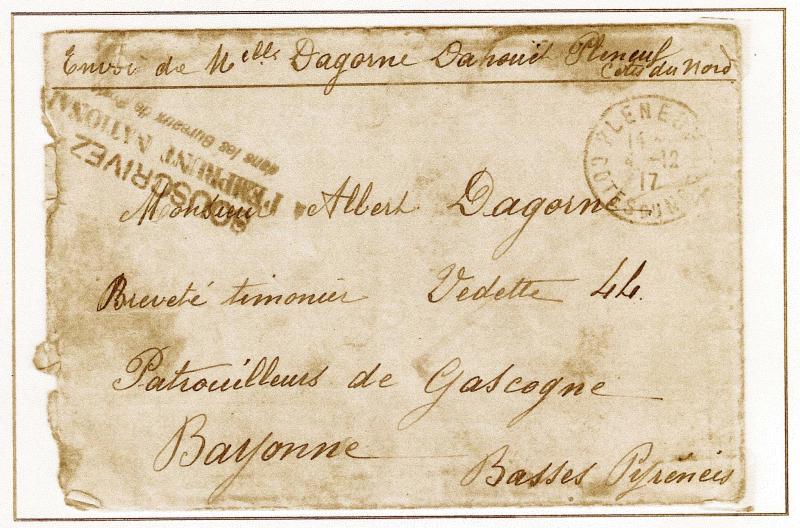 Envoi de Melle Dagorne Dahouët Pleneuf
Côtes du Nord
SOUSCRIVEZ
à l'EMPRUNT NATIONAL
dans les Bureaux de
PLENEUF
12
17
COTES DU NORD
Monsieur Albert Dagorne
Breveté timonier Vedette 44.
Patrouilleurs de Gascogne
Bayonne
Basses Pyrénéis